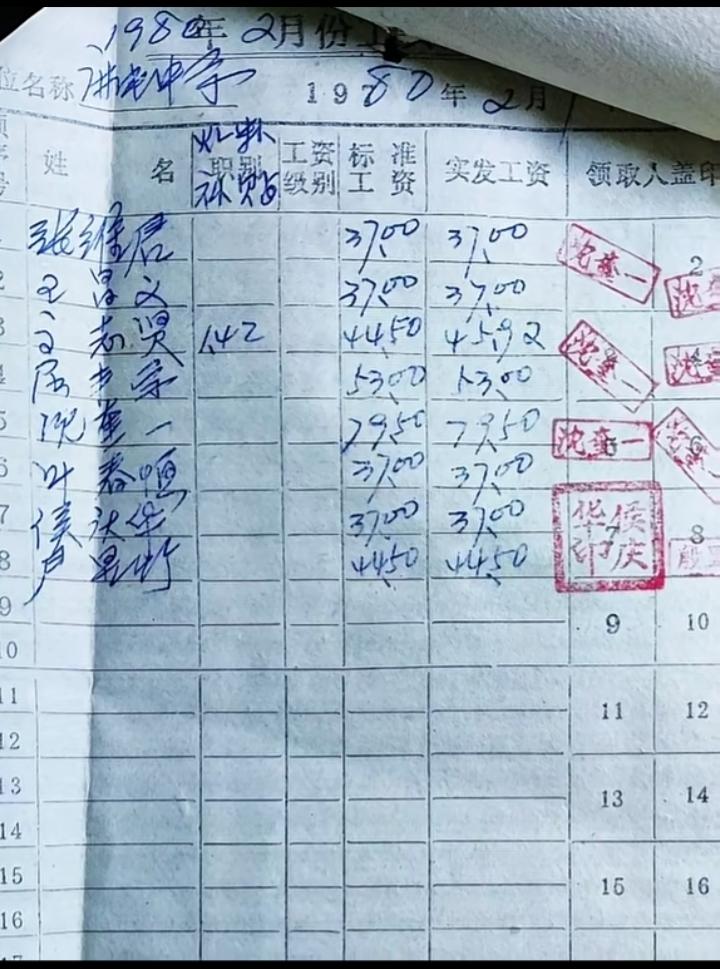 1980年2月份工
位名称 中学 1980年2月
姓名 职别 补贴 工资级别 标准工资 实发工资 领取人盖印
张维君 37.00 37.00 沈董一 2
王昌文 37.00 37.00 沈董
3 王志贤 1.42 44.50 45.92 沈董一 沈董
4 53.00 53.00
5 沈董一 79.50 79.50 沈董一 6
6 叶春恒 37.00 37.00
7 侯庆华 37.00 37.00 侯庆华印 7 8
8 卢 44.50 44.50 殷
9 9 10
10
11 11 12
12
13 13 14
14
15 15 16
16
17